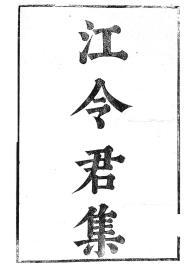 江令君集